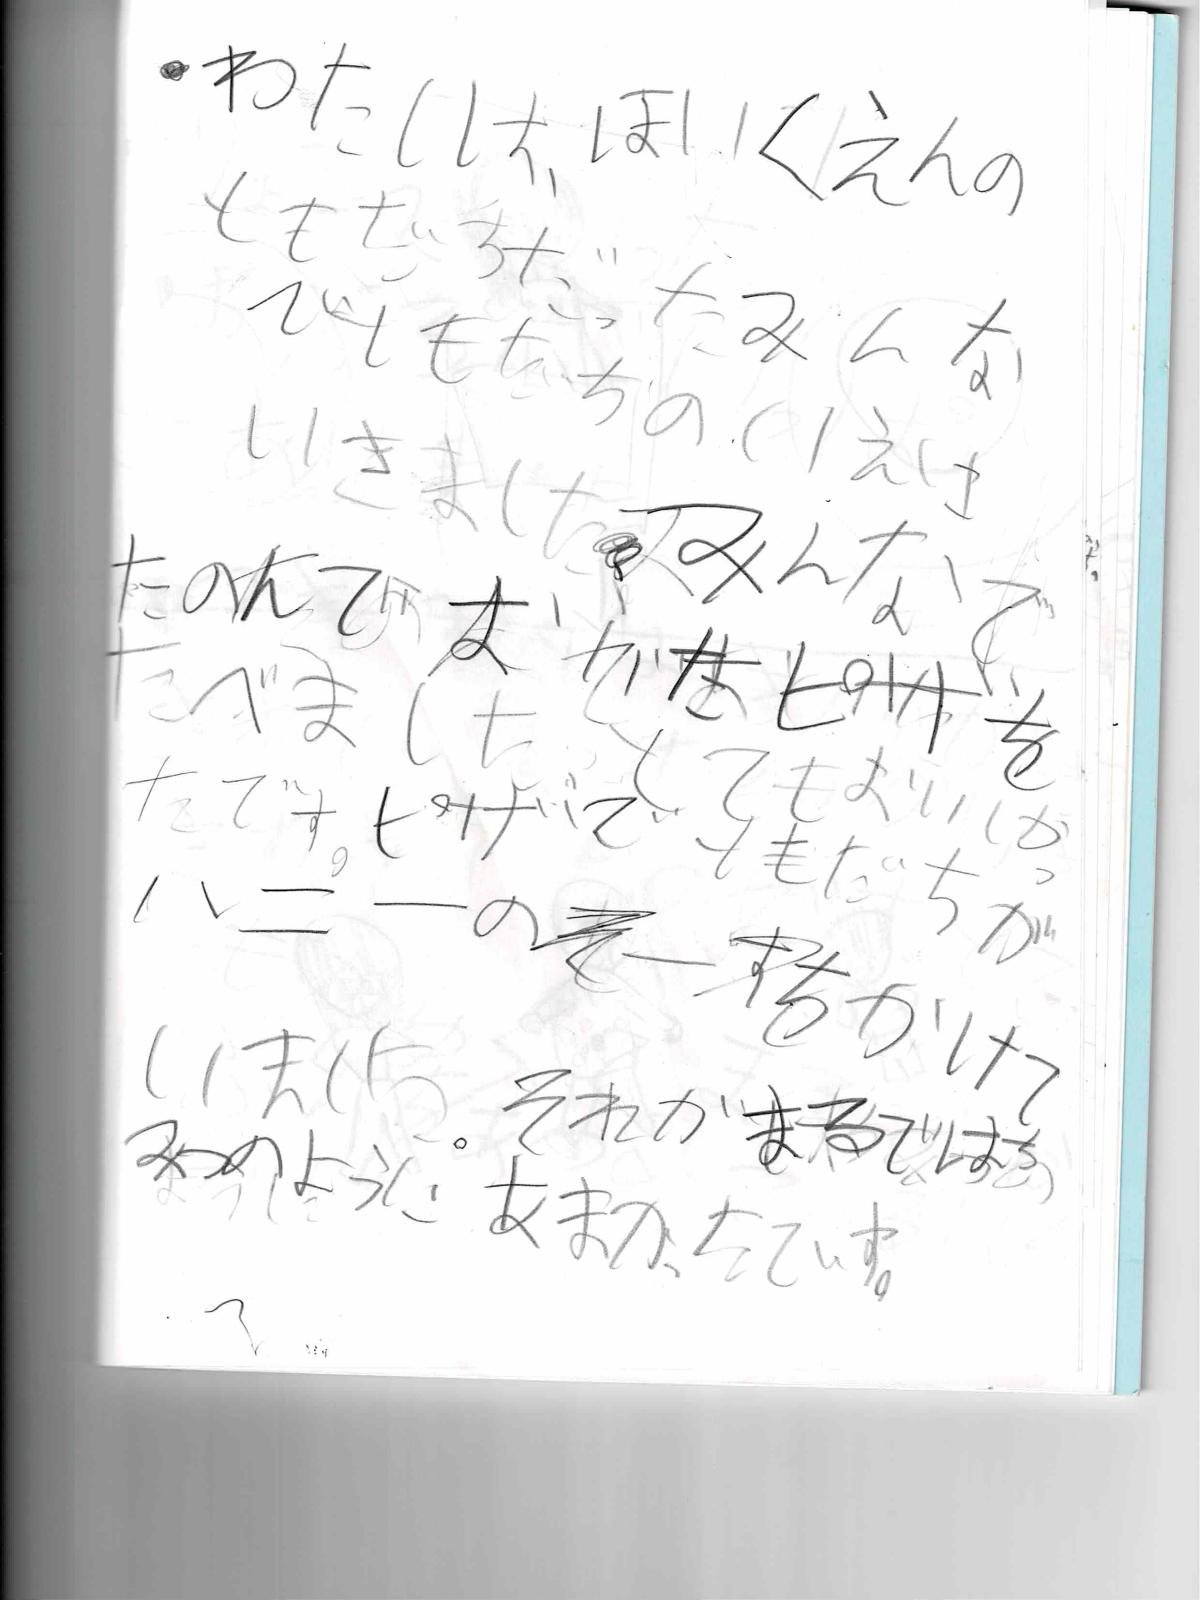 わたしは、ほいくえんの
ともだちだったみんな
でともだちのいえに
いきました みんなで
たのんで おおがたピザを
たべました とてもおいしかっ
たです。ピザで ともだちが
ハニーのそーすをかけて
いました。それがまるではち
みつのように あまかったです。